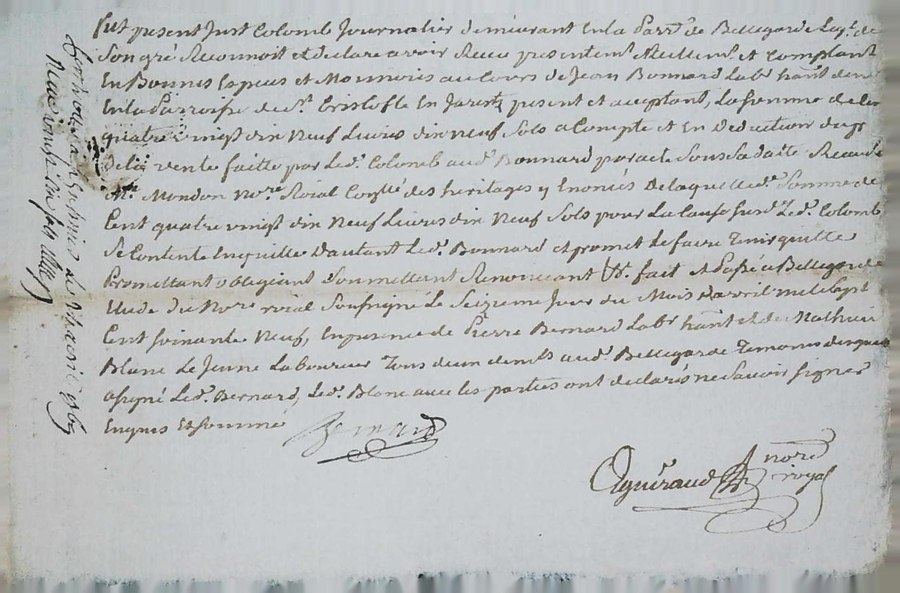 Fut present Just Colomb Journalier demeurant En la Parr.e de Bellegarde Leq.l de
Son gré Reconnoit et declare avoir Recu presentem.t Reellem.t et Comptant
En Bonnes Especes et Monnoies au Cours de Jean Bonnard Labr. habt. dem
En la Parroisse de S.t Cristofle En Jarest present et aceptant, La somme de
quatre vingt dix Neuf Livres dix neuf Sols a Compte et En Deduction du
de la vente faitte par Led.t Colomb aud.t Bonnard par acte Sous Sa datte Receu de
M.e Mondon No.re Roial Con des heritages y Enoncés De laquelle d.e Somme de
Cent quatre vingt dix Neuf Livres dix Neuf Sols pour La Cause susd.e Led.t Colomb
Se Contente Enquitte D'autant Led.t Bonnard et promet Le faire Tenir quitte
Promettant obligeant Soumettant Renoncant &.a fait et Passé a Bellegarde
Etude du No.re roial Soussigné Le Seizieme Jour du Mois d'avril mil Sept
Cent Soixante Neuf, En presence de Pierre Bernard Labr. habt. et de Mathieu
Blanc Le Jeune Laboureur Tous deux dem.ts aud.t Bellegarde Temoins desquels
a signé Led.t Bernard, Led.t Blanc avec les parties ont declarés ne Savoir Signer
Enquis Et Sommé
Bernard
Agniraud no.re
royal